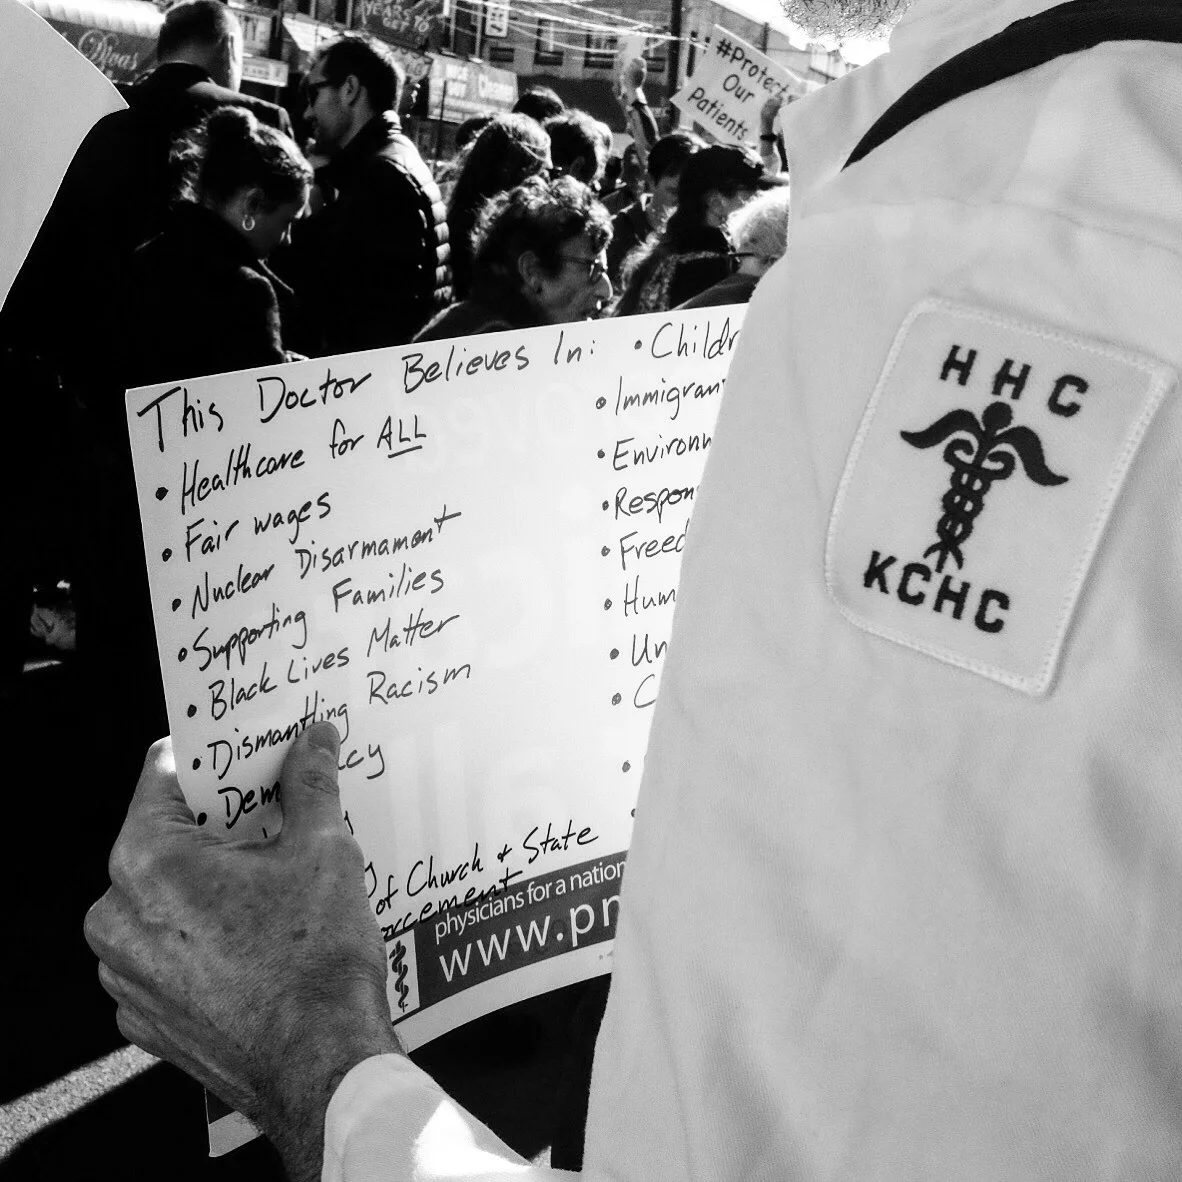 Divas
#Protect
Our
Patients
This Doctor Believes In:
• Healthcare for ALL
• Fair wages
• Nuclear Disarmament
• Supporting Families
• Black Lives Matter
• Dismantling Racism
• Dem cy
of Church & State
orcement
• Childr
• Immigran
• Environ
• Respon
• Freed
• Hum
• Un
• C
physicians for a nation
www.pn
HHC
KCHC